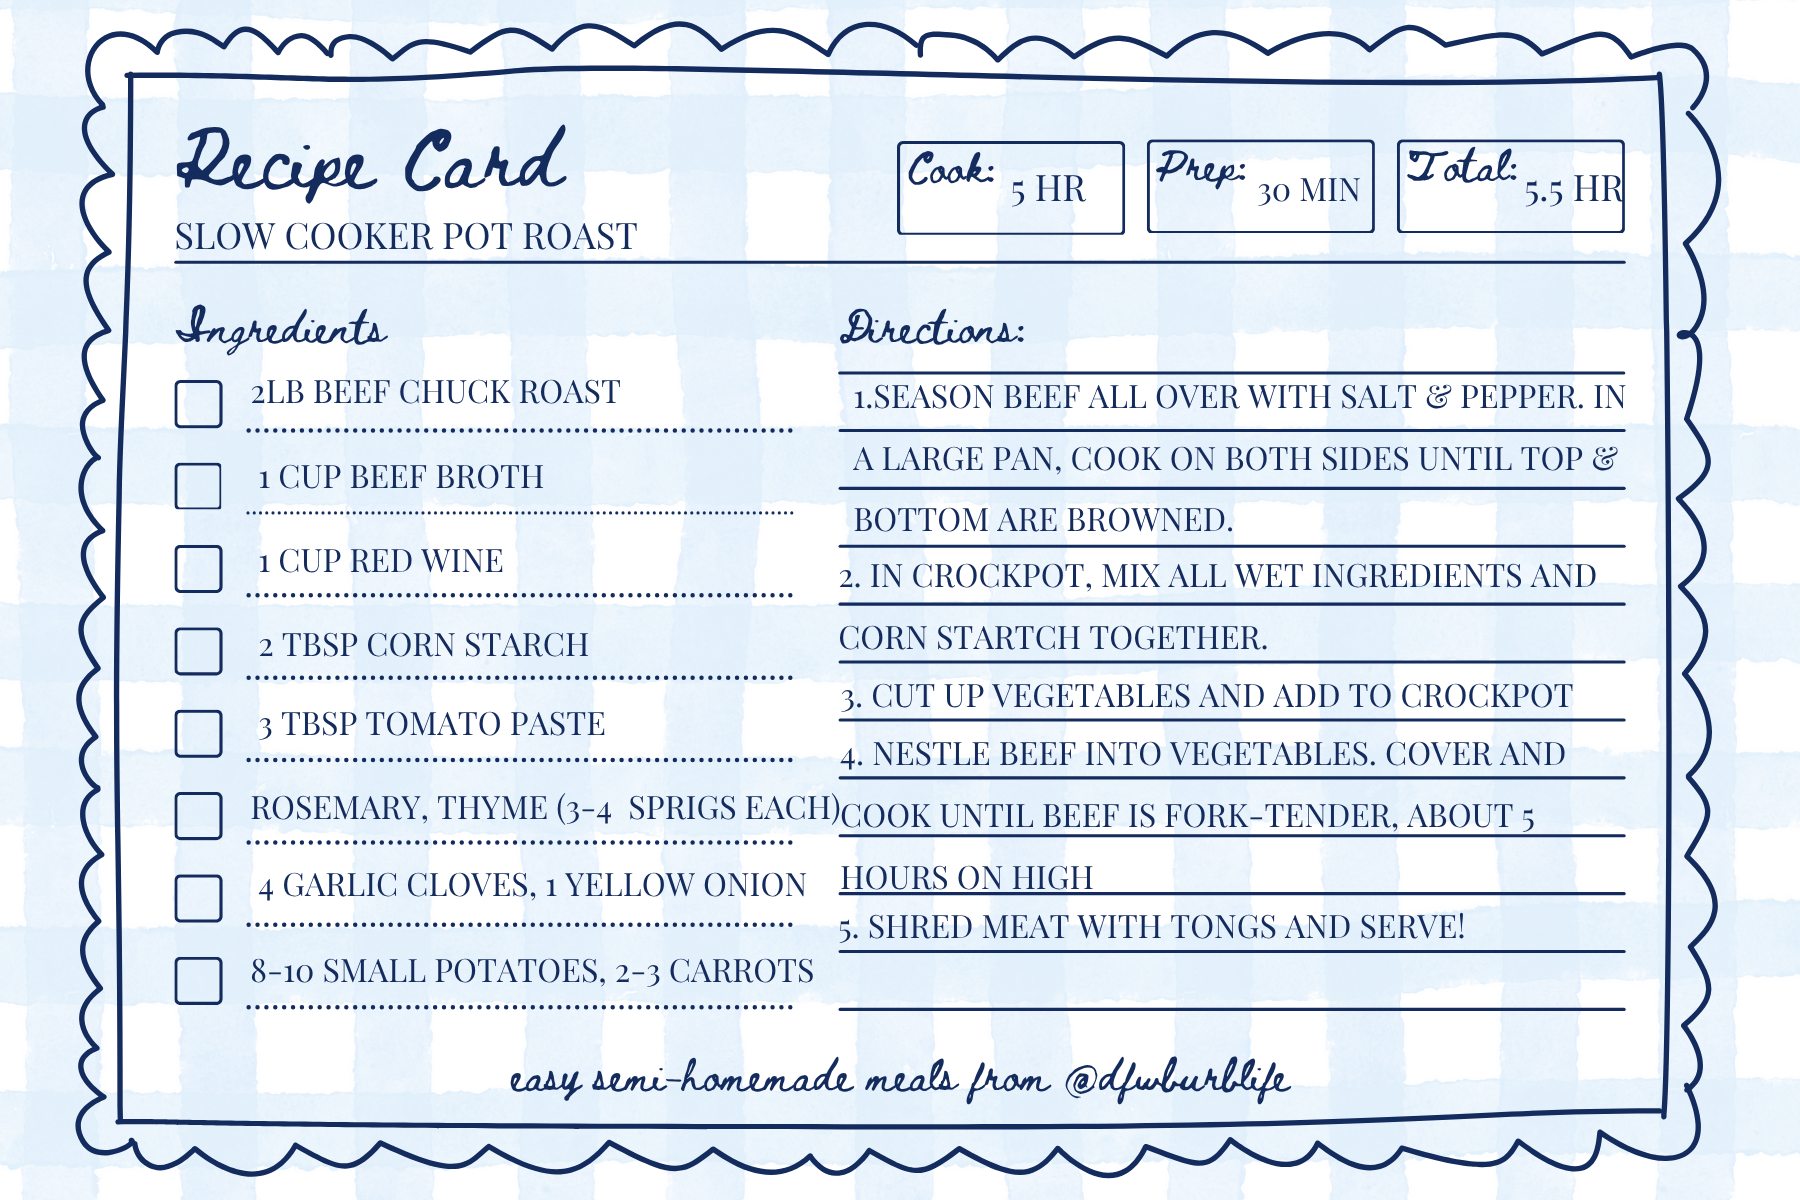 Recipe Card
SLOW COOKER POT ROAST
Cook: 5 HR
Prep: 30 MIN
Total: 5.5 HR
Ingredients
2LB BEEF CHUCK ROAST
1 CUP BEEF BROTH
1 CUP RED WINE
2 TBSP CORN STARCH
3 TBSP TOMATO PASTE
ROSEMARY, THYME (3-4 SPRIGS EACH)
4 GARLIC CLOVES, 1 YELLOW ONION
8-10 SMALL POTATOES, 2-3 CARROTS
Directions:
1.SEASON BEEF ALL OVER WITH SALT & PEPPER. IN
A LARGE PAN, COOK ON BOTH SIDES UNTIL TOP &
BOTTOM ARE BROWNED.
2. IN CROCKPOT, MIX ALL WET INGREDIENTS AND
CORN STARTCH TOGETHER.
3. CUT UP VEGETABLES AND ADD TO CROCKPOT
4. NESTLE BEEF INTO VEGETABLES. COVER AND
COOK UNTIL BEEF IS FORK-TENDER, ABOUT 5
HOURS ON HIGH
5. SHRED MEAT WITH TONGS AND SERVE!
easy semi-homemade meals from @dfwburblife